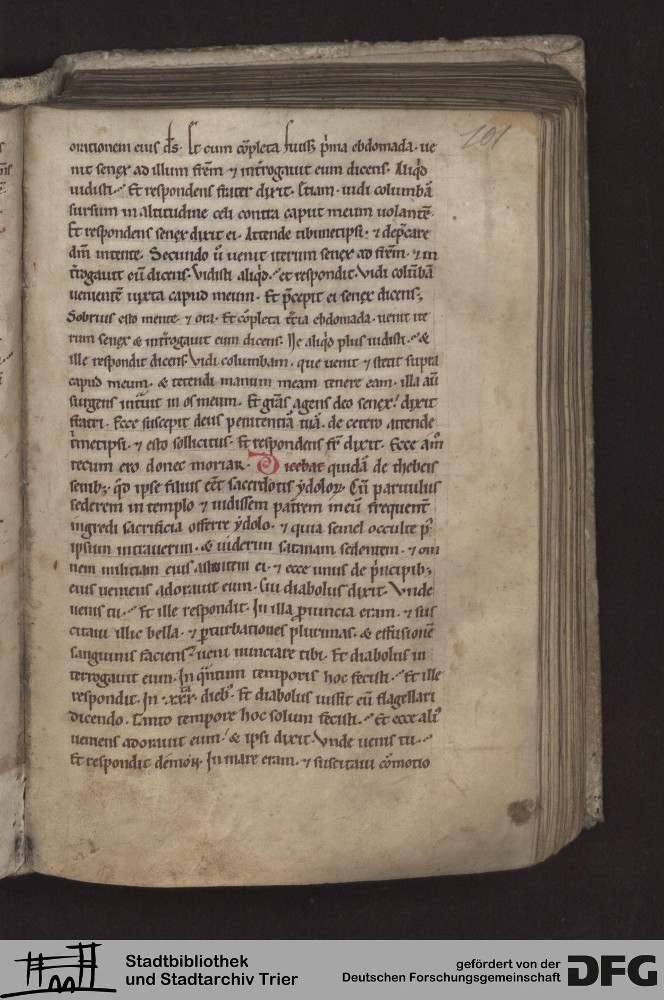 101
orationem eius ds. Et cum cōpleta fuisset p̄ma ebdomada. ue
nit senex ad illum frēm ⁊ int̄rogauit eum dicens. Aliqd
uidisti. Et respondens frater dixit. Etiam. uidi columbā
sursum in altitudine celi contra caput meum uolantē.
Et respondens senex dixit ei. Attende tibimetipsi. ⁊ dep̄care
dm̄ intente. Secundo ū uenit iterum senex ad frēm. ⁊ in
t̄rogauit eū dicens. Vidisti aliqd. et respondit. Vidi colūbā
uenientē iuxta capud meum. Et p̄cepit ei senex dicens;
Sobrius esto mente. ⁊ ora. Et cōpleta t̄cia ebdomada. uenit ite
rum senex & int̄rogauit eum dicens. Ne aliqd plus uidisti. &
ille respondit dicens. Vidi columbam. que uenit ⁊ stetit supra
capud meum. & tetendi manum meam tenere eam. illa aū
surgens intuit in os meum. Et gr̄as agens deo senex. dixit
fratri. Ecce suscepit deus penitentiā tuā. de cetero attende
t̄metipsi. ⁊ esto sollicitus. Et respondens fr̄ dixit. Ecce am̄
tecum ero donec moriar. Dicebat quidā de thebeis
senib; qd ipse filius eēt sacerdotis ydoloꝝ. Cū paruulus
sederem in templo ⁊ uidissem patrem meū frequent̄
ingredi sacrificia offerre ydolo. ⁊ quia semel occulte p̄
ipsum intrauerim. & uiderim satanam sedentem. ⁊ om
nem militiam eius astantem ei. ⁊ ecce unus de p̄ncipib;
eius ueniens adorauit eum. Cui diabolus dixit. Vnde
uenis tu. Et ille respondit. In illa ꝓuincia eram. ⁊ sus
citaui illic bella. ⁊ ꝑturbationes plurimas. & effusionē
sanguinis faciens ueni nunciare tibi. Et diabolus in
terrogauit eum. In qn̄tum temporis hoc fecisti. Et ille
respondit. In .xxx. dieb;. Et diabolus iussit eū flagellari
dicendo. Tanto tempore hoc solum fecisti. Et ecce ali
ueniens adorauit eum. & ipsi dixit. Vnde uenis tu.
Et respondit demon. In mare eram. ⁊ suscitaui cōmotio
Stadtbibliothek
und Stadtarchiv Trier
gefördert von der
Deutschen Forschungsgemeinschaft
DFG